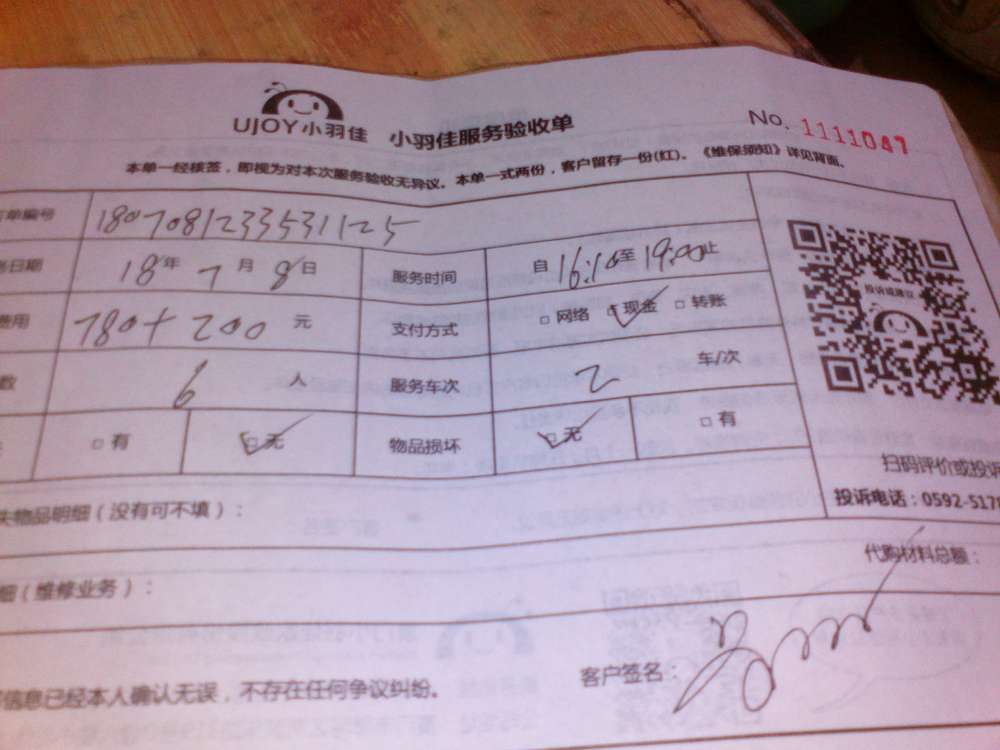 UJOY小羽佳 小羽佳服务验收单 No. 1111047
本单一经核签，即视为对本次服务验收无异议。本单一式两份，客户留存一份(红)。《维保须知》详见背面。
单编号 180708123531125
日期 18年 7月 8日 服务时间 自16:10至19:00止
费用 780+200 元 支付方式 □网络 □现金 □转账
投诉或建议
数 6 人 服务车次 2 车/次
□有 □无 物品损坏 □无 □有
扫码评价或投诉
投诉电话：0592-517
失物品明细（没有可不填）：
代购材料总额：
细（维修业务）：
客户签名：
信息已经本人确认无误，不存在任何争议纠纷。